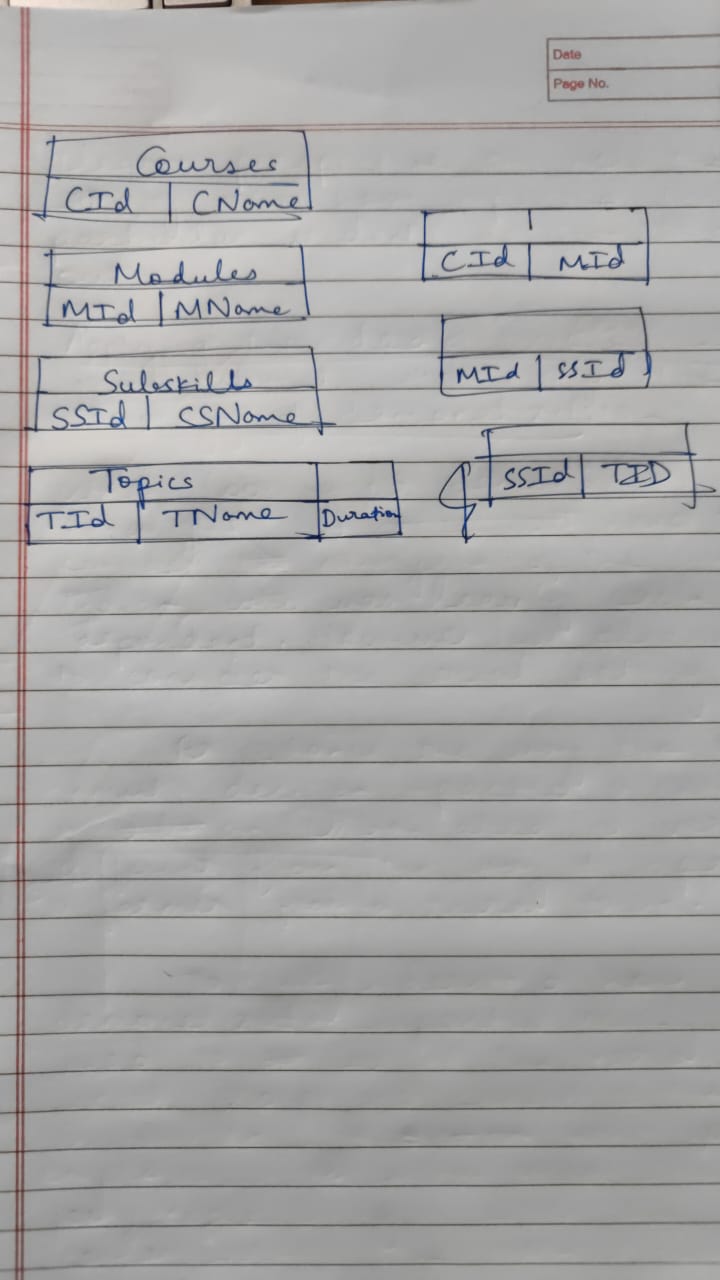 Date
Page No.
Courses
CId CName
Modules
MId MName
Subskills
SSId SSName
Topics
TId TName Duration
CId MId
MId SSId
SSId TID